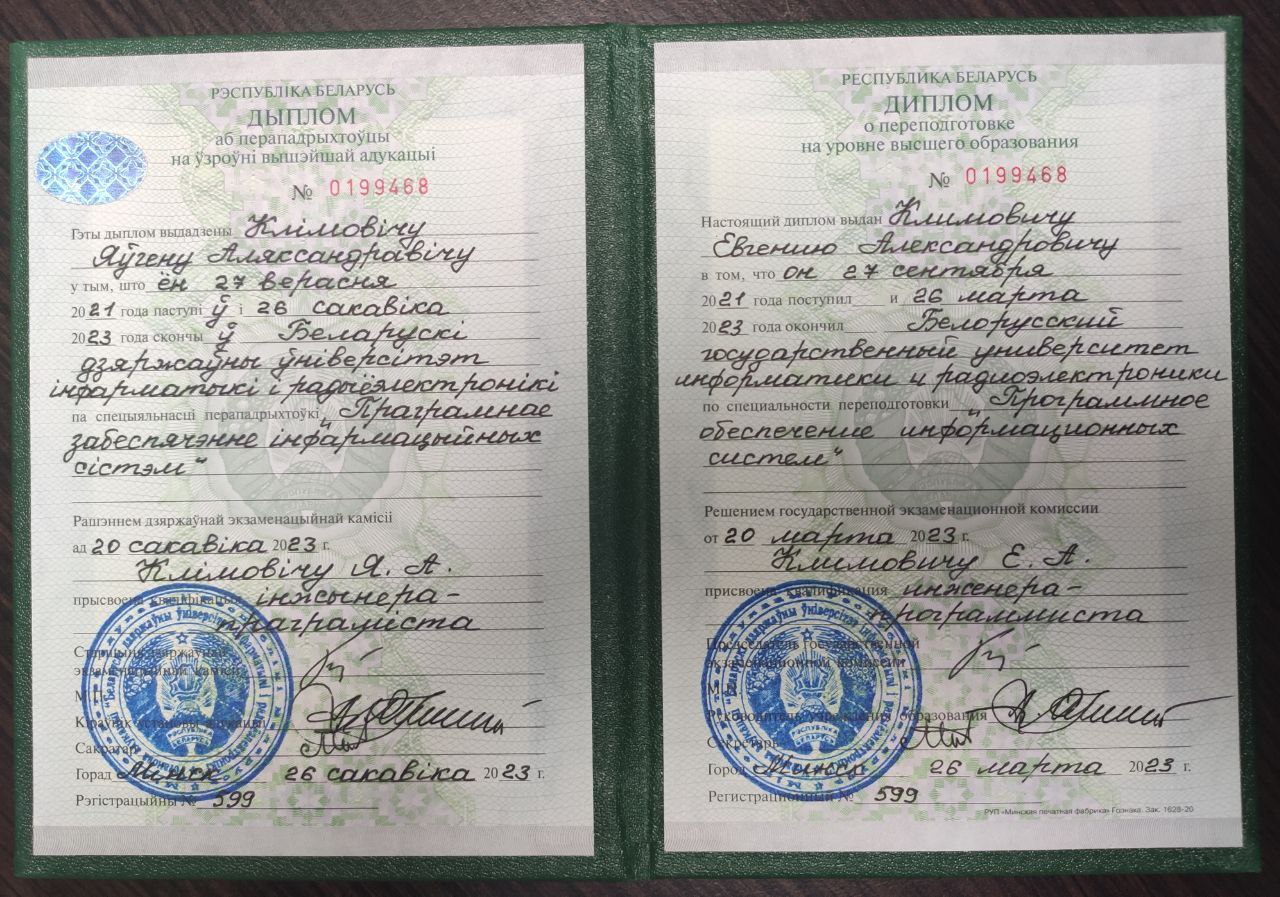 РЭСПУБЛІКА БЕЛАРУСЬ
ДЫПЛОМ
аб перападрыхтоўцы
на ўзроўні вышэйшай адукацыі
№ 0199468
Гэты дыплом выдадзены Клімовічу
Яўгену Аляксандравічу
у тым, што ён 27 верасня
2021 года паступіў ў і 26 сакавіка
2023 года скончыў ў Беларускі
дзяржаўны ўніверсітэт
інфарматыкі і радыёэлектронікі
па спецыяльнасці перападрыхтоўкі „Праграмнае
забеспячэнне інфармацыйных
сістэм“
Рашэннем дзяржаўнай экзаменацыйнай камісіі
ад 20 сакавіка 2023 г.
Клімовічу Я. А.
прысвоена кваліфікацыя інжынера-
праграміста
Старшыня дзяржаўнай
экзаменацыйнай камісіі
М.П.
Кіраўнік установы адукацыі
Сакратар
Горад Мінск 26 сакавіка 2023 г.
Рэгістрацыйны № 599
РЕСПУБЛИКА БЕЛАРУСЬ
ДИПЛОМ
о переподготовке
на уровне высшего образования
№ 0199468
Настоящий диплом выдан Климовичу
Евгению Александровичу
в том, что он 27 сентября
2021 года поступил и 26 марта
2023 года окончил Белорусский
государственный университет
информатики и радиоэлектроники
по специальности переподготовки „Программное
обеспечение информационных
систем“
Решением государственной экзаменационной комиссии
от 20 марта 2023 г.
Климовичу Е. А.
присвоена квалификация инженера-
программиста
Председатель государственной
экзаменационной комиссии
М.П.
Руководитель учреждения образования
Секретарь
Город Минск 26 марта 2023 г.
Регистрационный № 599
РУП «Минская печатная фабрика» Гознака. Зак. 1628-20